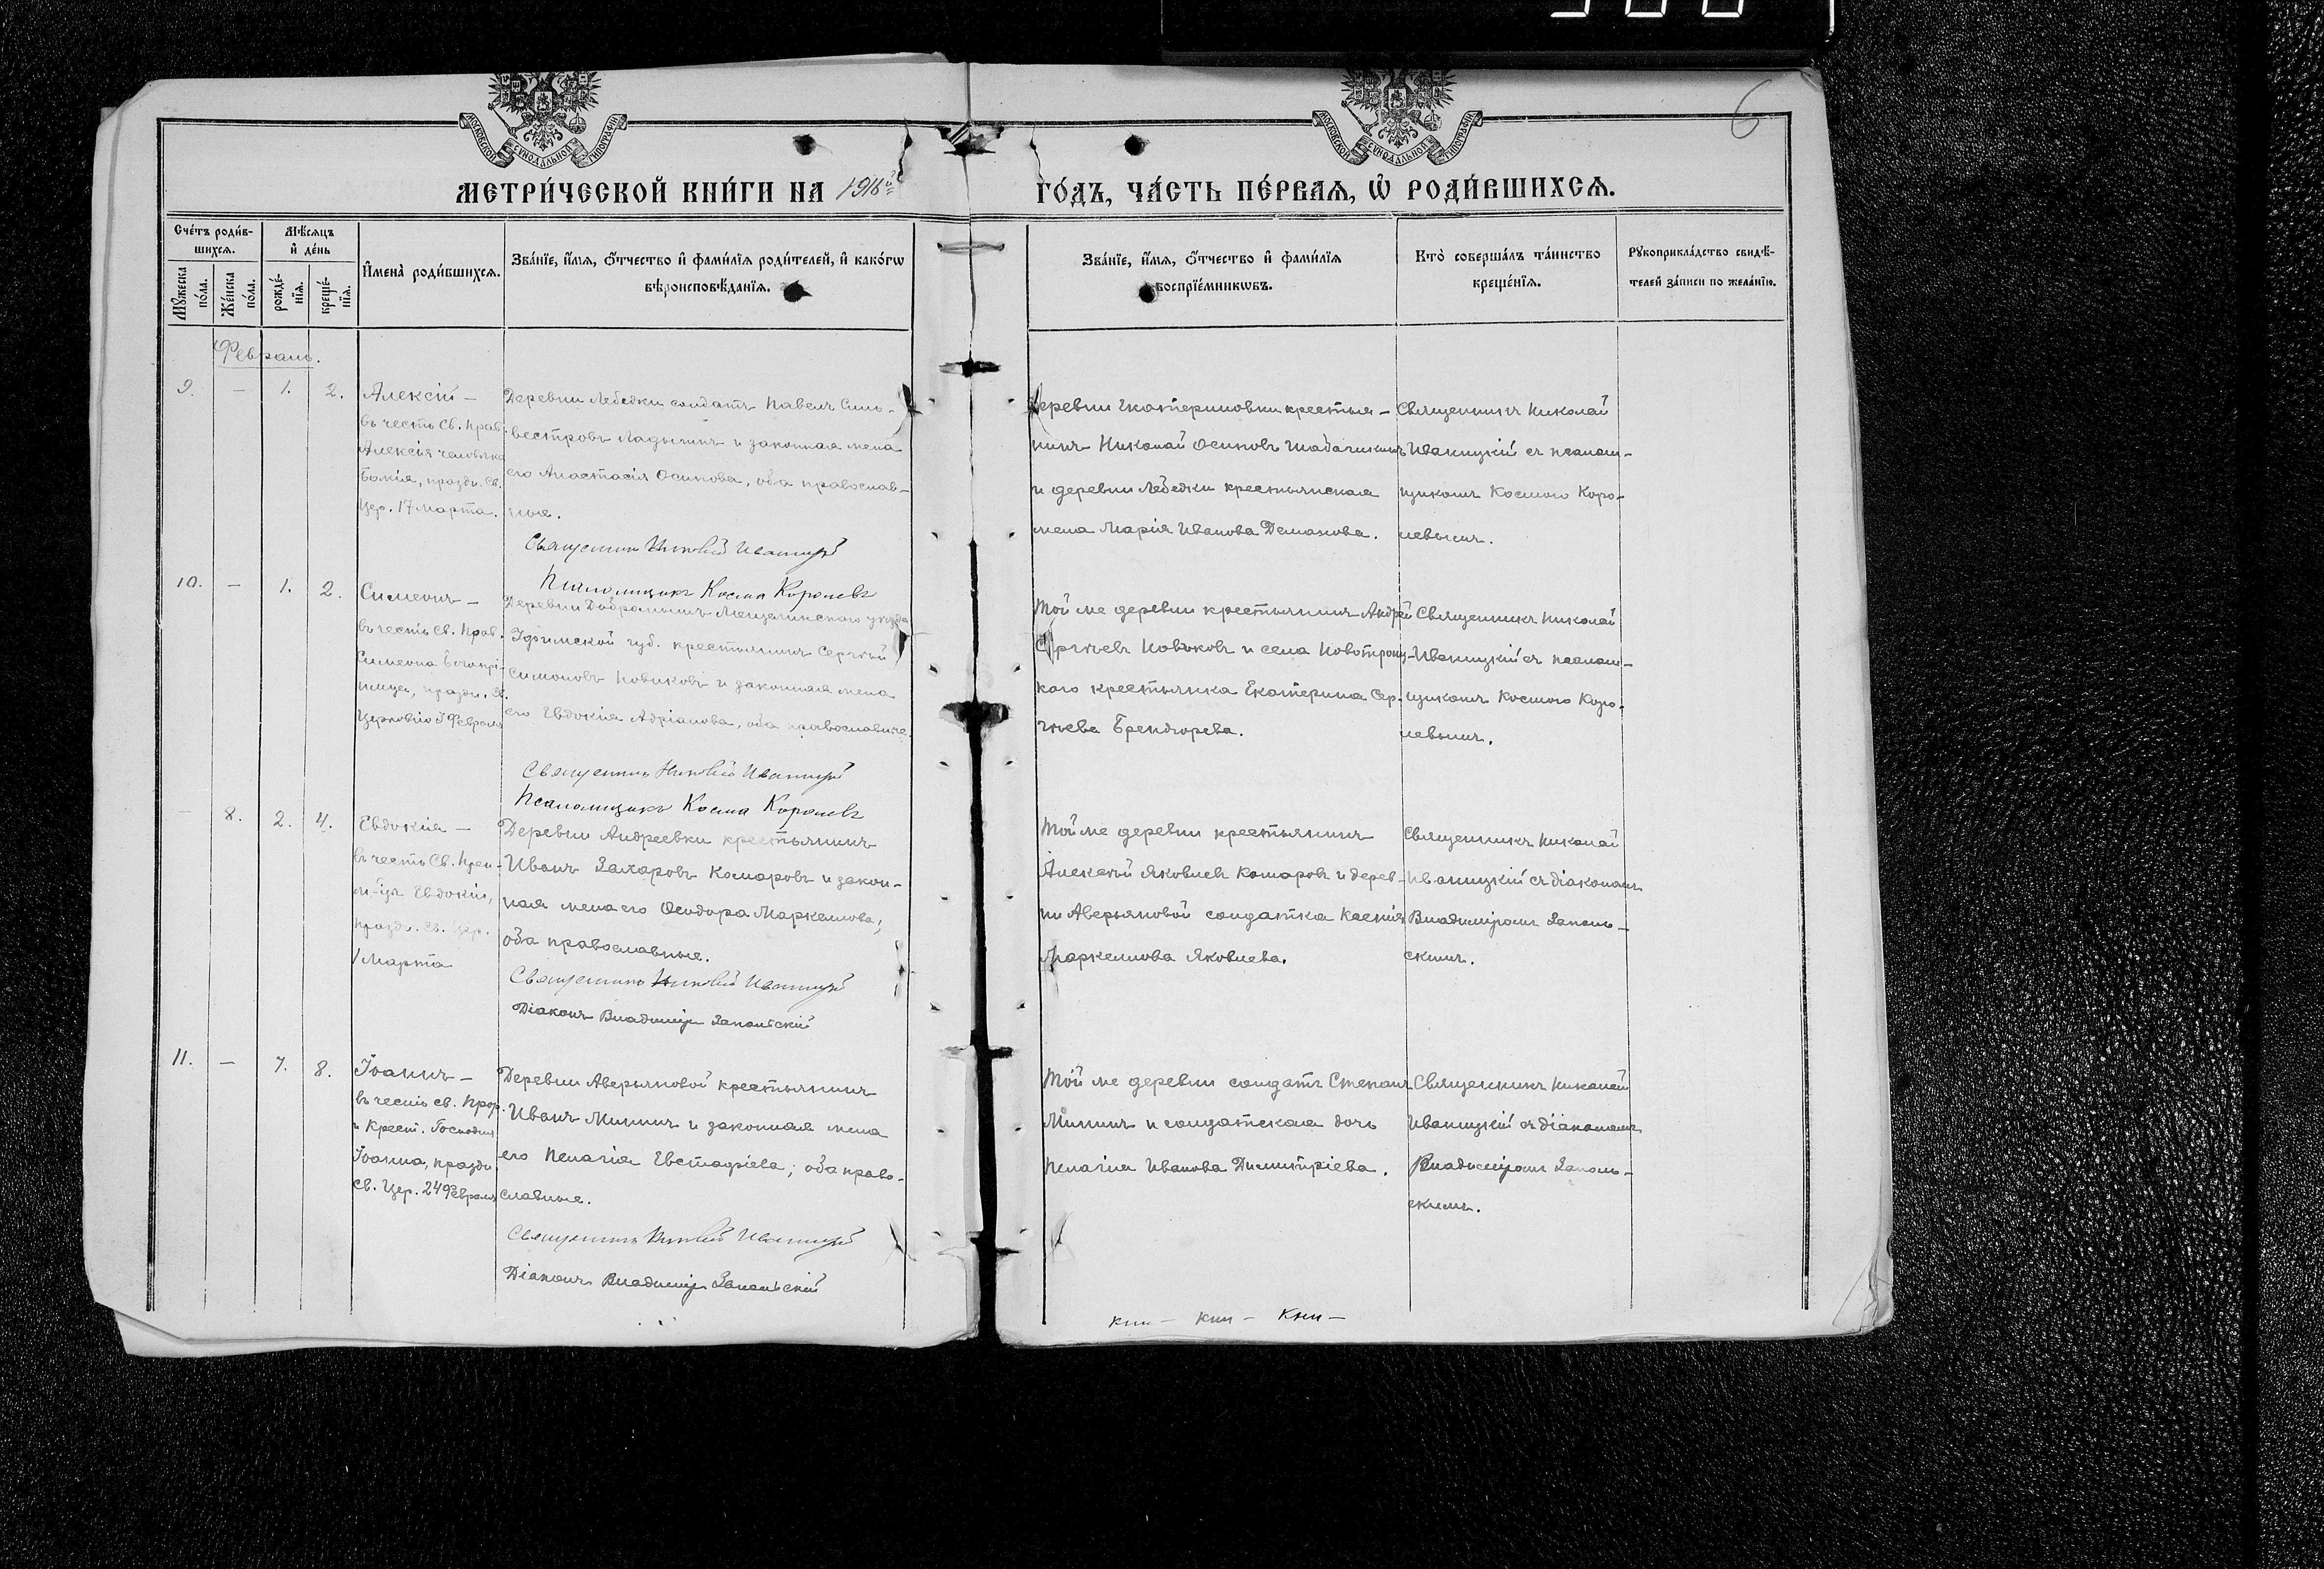 6
МОСКОВСКОЙ СѴНОДАЛЬНОЙ ТИПОГРАФІИ
МОСКОВСКОЙ СѴНОДАЛЬНОЙ ТИПОГРАФІИ
МЕТРИ́ЧЕСКОЙ КНИ́ГИ НА 1916й ГО́ДЪ, ЧА́СТЬ ПЕ́РВАЯ, Ѡ҆ РОДИ́ВШИХСѦ.
Сче́тъ роди́в-
шихсѧ.
Мѹ́жеска по́ла.
Же́нска по́ла.
Мѣ́сѧцъ
и҆ де́нь
рожде́-
нїѧ.
креще́-
нїѧ.
И҆мена̀ роди́вшихсѧ.
Зва́нїе, и҆́мѧ, ѻ҆́тчество и҆ фами́лїѧ роди́телей, и҆ како́гѡ
вѣроисповѣ́данїѧ.
Зва́нїе, и҆́мѧ, ѻ҆́тчество и҆ фами́лїѧ
воспрїе́мникѡвъ.
Кто̀ соверша́лъ та́инство
креще́нїѧ.
Рѹкоприкла́дство свидѣ́-
телей за́писи по жела́нїю.
Февраль.
9. - 1. 2.
Алексій -
въ честь св. Прав.
Алексія человѣка
Божія, праздн. св.
Цер. 17 Марта.
Деревни Лебедки солдатъ Павелъ Силь-
вестровъ Ладычинъ и законная жена
его Анастасія Осипова, оба православ-
ные.
Священникъ Николай Иваницкій
Псаломщикъ Косма Королевъ
Деревни Екатериновки крестья-
нинъ Николай Осиповъ Шабаникинъ
и деревни Лебедки крестьянская
жена Марія Иванова Демахова.
Священникъ Николай
Иваницкій съ псалом-
щикомъ Космою Коро-
левымъ.
10. - 1. 2.
Симеонъ -
въ честь св. Прав.
Симеона Богопрі-
имца, праздн. св.
Церковію 3 Февраля
Деревни Мещелинскаго уѣзда
губ. крестьянинъ Сергѣй
Симоновъ Новиковъ и законная жена
его Евдокія Адріанова, оба православные.
Священникъ Николай Иваницкій
Псаломщикъ Косма Королевъ
Той же деревни крестьянинъ Андрей
Сергѣевъ Новиковъ и села Новотроиц-
каго крестьянка Екатерина Сер-
гѣева
Священникъ Николай
Иваницкій съ псалом-
щикомъ Космою Коро-
левымъ.
- 8. 2. 4.
Евдокія -
въ честь св. Преп-
м-цы Евдокіи,
праздн. св. Цер.
1 Марта
Деревни Андреевки крестьянинъ
Иванъ Захаровъ Комаровъ и закон-
ная жена его Ѳеодора Маркелова;
оба православные.
Священникъ Николай Иваницкій
Діаконъ Владиміръ Запольскій
Той же деревни крестьянинъ
Алексѣй Яковлевъ Комаровъ и дерев-
ни Аверьяновой солдатка Ксенія
Маркелова Яковлева.
Священникъ Николай
Иваницкій съ діакономъ
Владиміромъ Заполь-
скимъ.
11. - 7. 8.
Іоаннъ -
въ честь св. Прор.
и Крест. Господня
Іоанна, праздн.
св. Цер. 24 Февраля
Деревни Аверьяновой крестьянинъ
Иванъ Мининъ и законная жена
его Пелагія Евстафіева; оба право-
славные.
Священникъ Николай Иваницкій
Діаконъ Владиміръ Запольскій
Той же деревни солдатъ Степанъ
Мининъ и солдатская дочь
Пелагія Иванова Димитріева.
Священникъ Николай
Иваницкій съ діакономъ
Владиміромъ Заполь-
скимъ.
кни - кни - кни -